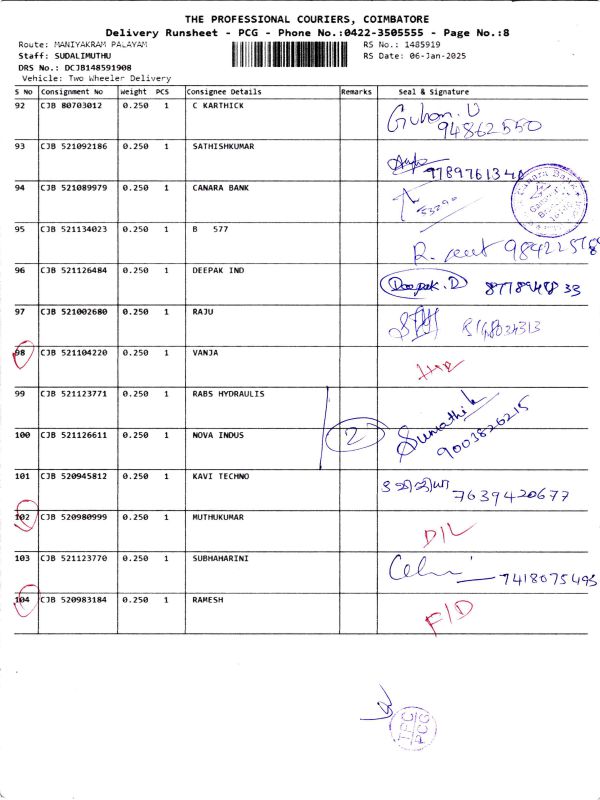 THE PROFESSIONAL COURIERS, COIMBATORE
Delivery Runsheet - PCG - Phone No.:0422-3505555 - Page No.:8
Route: MANIYAKRAM PALAYAM RS No.: 1485919
Staff: SUDALIMUTHU RS Date: 06-Jan-2025
DRS No.: DCJB148591908
Vehicle: Two Wheeler Delivery
S No Consignment No Weight PCS Consignee Details Remarks Seal & Signature
92 CJB 80703012 0.250 1 C KARTHICK Guhan.U
94862550
93 CJB 521092186 0.250 1 SATHISHKUMAR
94 CJB 521089979 0.250 1 CANARA BANK 53290 Canara Bank
95 CJB 521134023 0.250 1 B 577
96 CJB 521126484 0.250 1 DEEPAK IND Deepak.D
97 CJB 521002680 0.250 1 RAJU
98 CJB 521104220 0.250 1 VANJA
99 CJB 521123771 0.250 1 RABS HYDRAULIS
100 CJB 521126611 0.250 1 NOVA INDUS 2 9003826215
101 CJB 520945812 0.250 1 KAVI TECHNO 7639420677
102 CJB 520980999 0.250 1 MUTHUKUMAR D/L
103 CJB 521123770 0.250 1 SUBHAHARINI 7418075495
104 CJB 520983184 0.250 1 RAMESH F/D
TPC
PCG